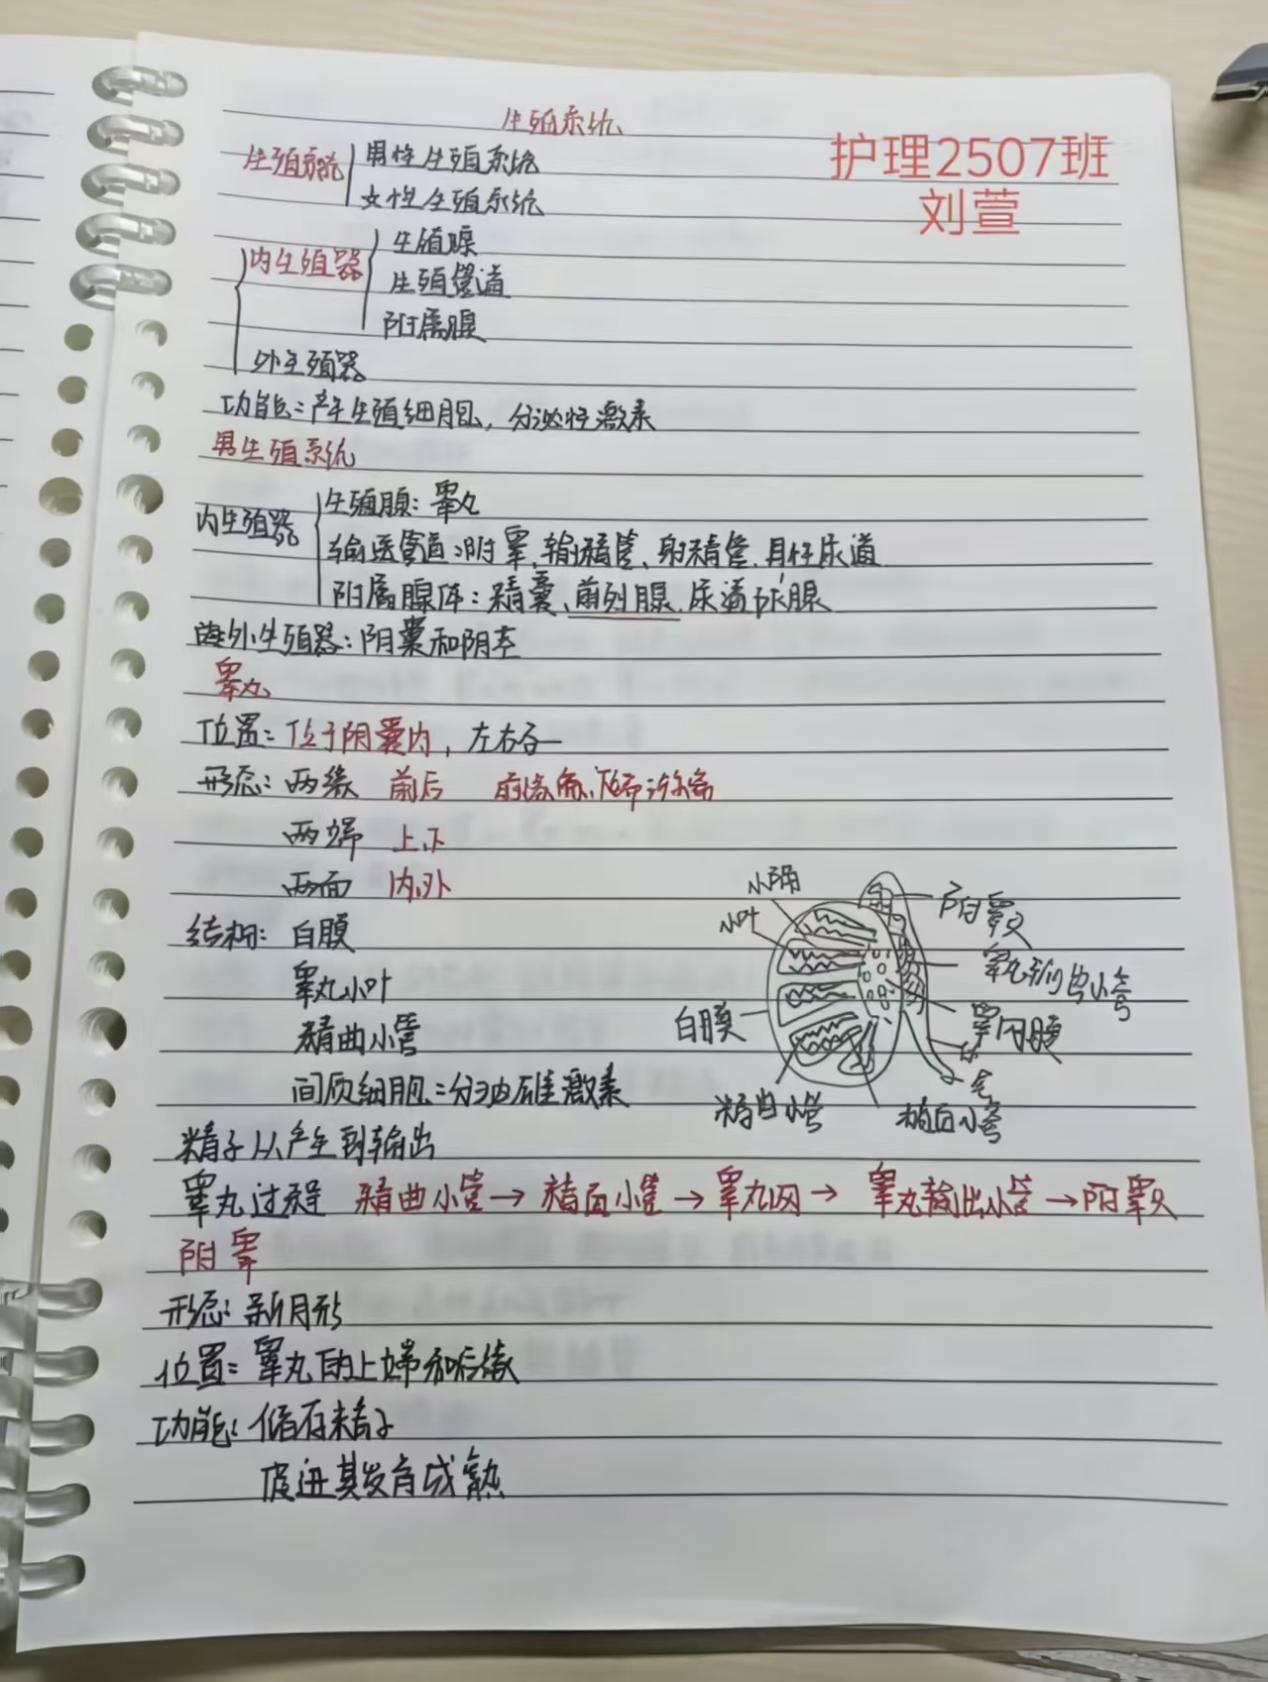 生殖系统
护理2507班
刘萱
生殖系统 男性生殖系统
女性生殖系统
内生殖器 生殖腺
生殖管道
附属腺
外生殖器
功能:产生生殖细胞,分泌性激素
男生殖系统
内生殖器 生殖腺:睾丸
输送管道:附睾、输精管、射精管、男性尿道
附属腺体:精囊、前列腺、尿道球腺
外生殖器:阴囊和阴茎
睾丸
位置:位于阴囊内,左右各一
形态:两缘 前后
两端 上、下
两面 内、外
结构:白膜
睾丸小叶
精曲小管
间质细胞:分泌雄激素
小隔
小叶
白膜
精曲小管
附睾头
睾丸输出小管
体
精直小管
精子从产生到输出
睾丸过程 精曲小管→精直小管→睾丸网→睾丸输出小管→附睾头
附睾
形态:新月形
位置:睾丸的上端和后缘
功能:储存精子
促进其发育成熟